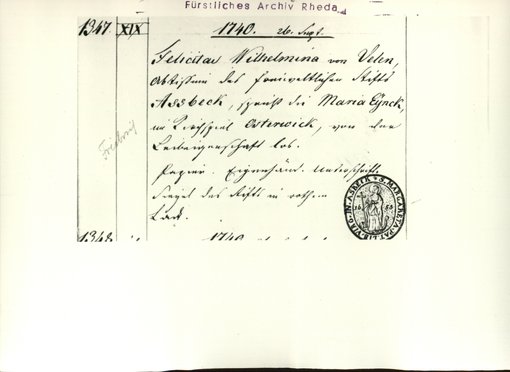 Fürstliches Archiv Rheda
1347 XIX 1740. 26. Sept.
Felicitas Wilhelmina von Velen,
Abtissin des freiweltlichen Stifts
Assbeck, spricht die Maria Eynck,
im Kirchspiel Osterwick, von der
Leibeigenschaft los.
Papier. Eigenhänd. Unterschrift.
Siegel des Stifts in rothem
Lack.
1348 1740